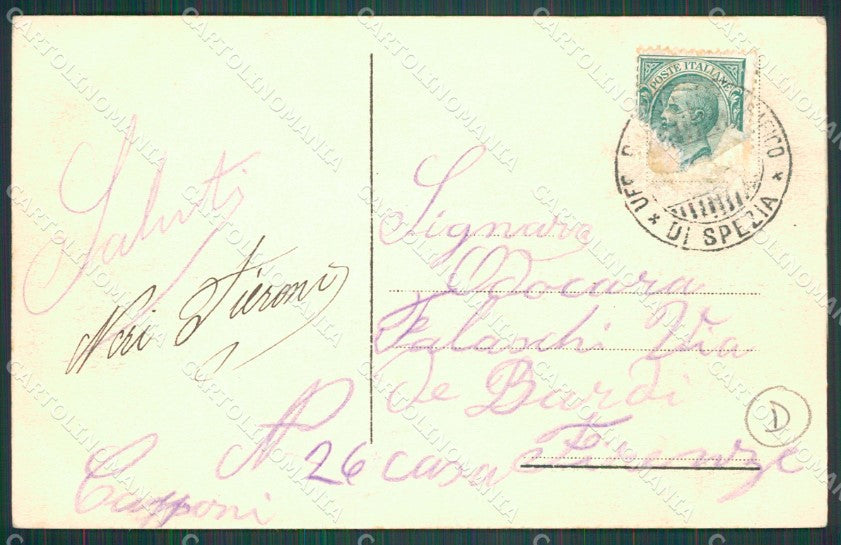 POSTE ITALIANE
UFF. P
* DI SPEZIA *
Saluti
Neri Pieroni
Signore
Odocara
Falaschi Via
de Bardi
N 26 casa Firenze
Capponi
D
CARTOLINOMANIA